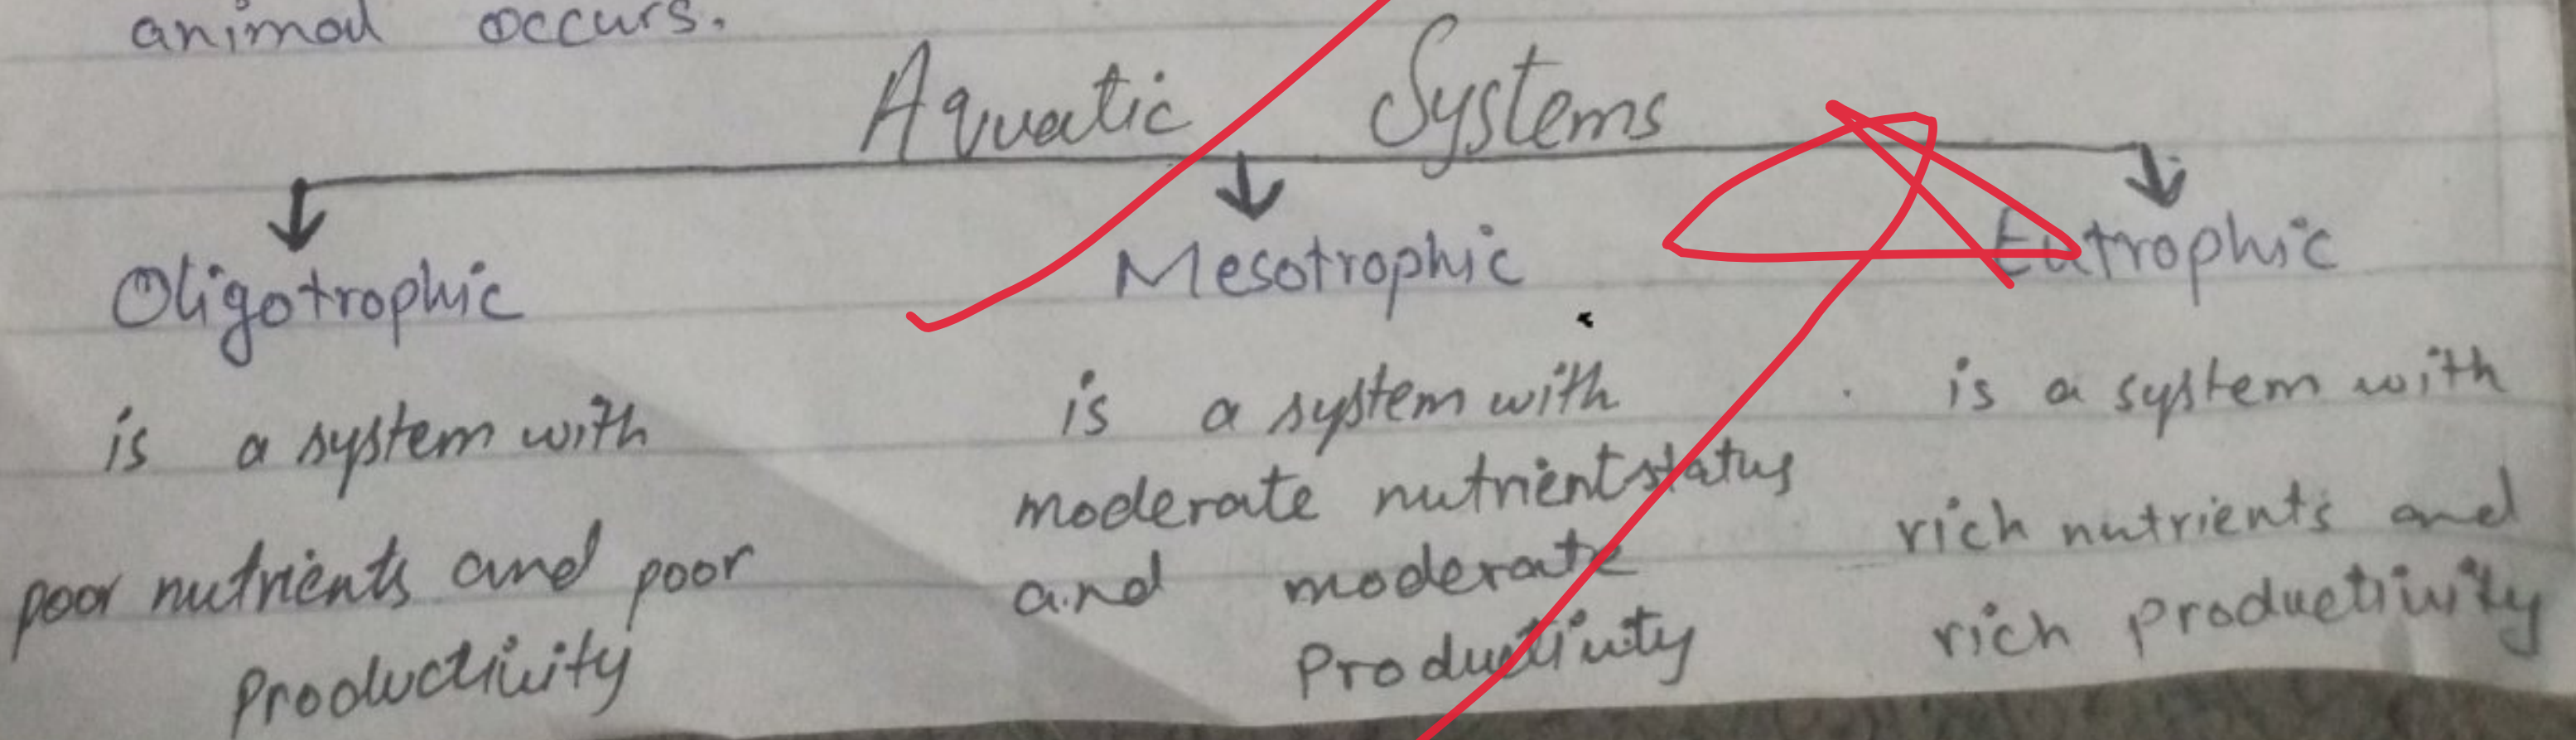 animal occurs.
Aquatic Systems
Oligotrophic
is a system with
poor nutrients and poor
Productivity
Mesotrophic
is a system with
moderate nutrient status
and moderate
Productivity
Eutrophic
is a system with
rich nutrients and
rich productivity